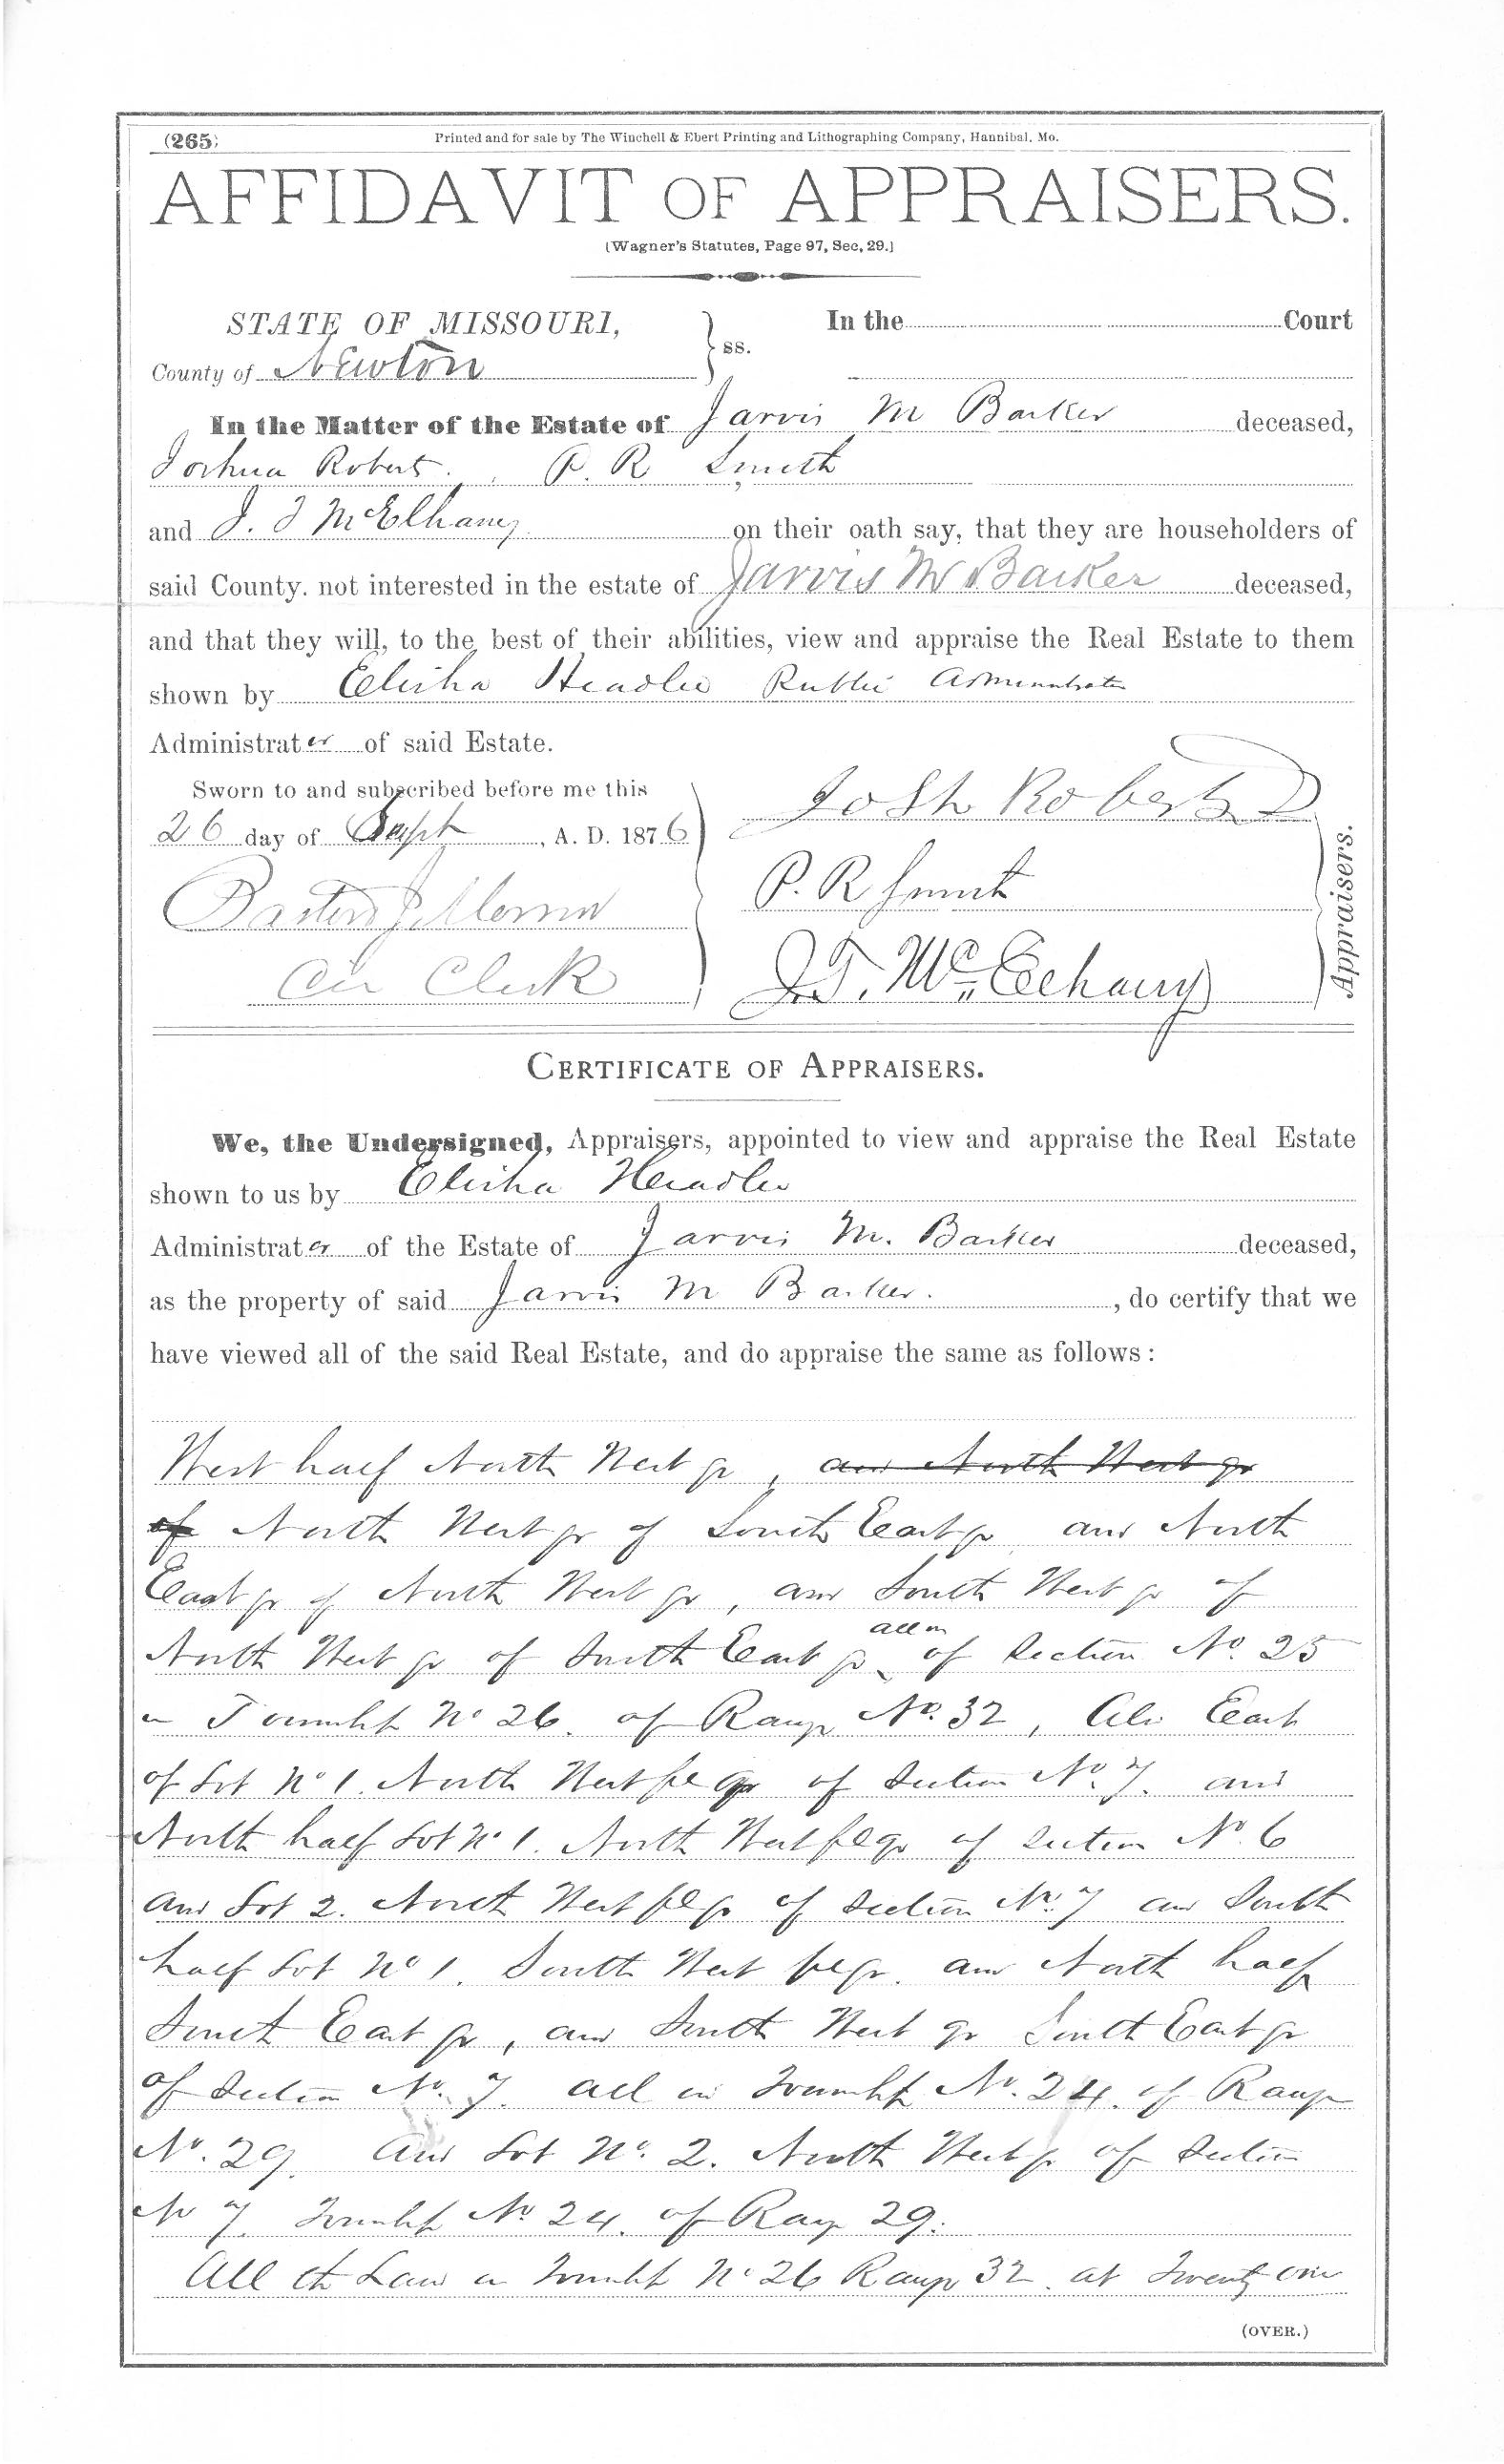 (265)
Printed and for sale by The Winchell & Ebert Printing and Lithographing Company, Hannibal, Mo.
AFFIDAVIT OF APPRAISERS.
(Wagner's Statutes, Page 97, Sec, 29.)
STATE OF MISSOURI, } ss. In the Court
County of Newton
In the Matter of the Estate of Jarvis M Barker deceased,
Joshua Roberts, P. R Smith
and J. T McElhany on their oath say, that they are householders of
said County. not interested in the estate of Jarvis M Barker deceased,
and that they will, to the best of their abilities, view and appraise the Real Estate to them
shown by Elisha Headlee Public Administrator
Administrator of said Estate.
Sworn to and subscribed before me this
26 day of Sept, A. D. 1876
Josh Roberts
P. R Smith
Cir Clerk
J. T. McElhany
Appraisers.
CERTIFICATE OF APPRAISERS.
We, the Undersigned, Appraisers, appointed to view and appraise the Real Estate
shown to us by Elisha Headlee
Administrator of the Estate of Jarvis M. Barker deceased,
as the property of said Jarvis M Barker. , do certify that we
have viewed all of the said Real Estate, and do appraise the same as follows:
West half North West qr, and North West qr
of North West qr of South East qr and North
East qr of North West qr, and South West qr of
North West qr of South East qr all in of Section No. 25
in Township No 26. of Range No. 32, Also East
of Lot No 1. North West fl qr of Section No. 7. and
North half Lot No 1. North West fl qr of Section No. 6
and Lot 2. North West fl qr of Section No. 7 and South
half Lot No 1. South West fl qr. and North half
South East qr, and South West qr South East qr
of Section No. 7. all in Township No. 24. of Range
No. 29. and Lot No. 2. North West qr of Section
No 7. Township No. 24. of Range 29.
All the Land in Township No 26 Range 32. at Twenty one
(OVER.)